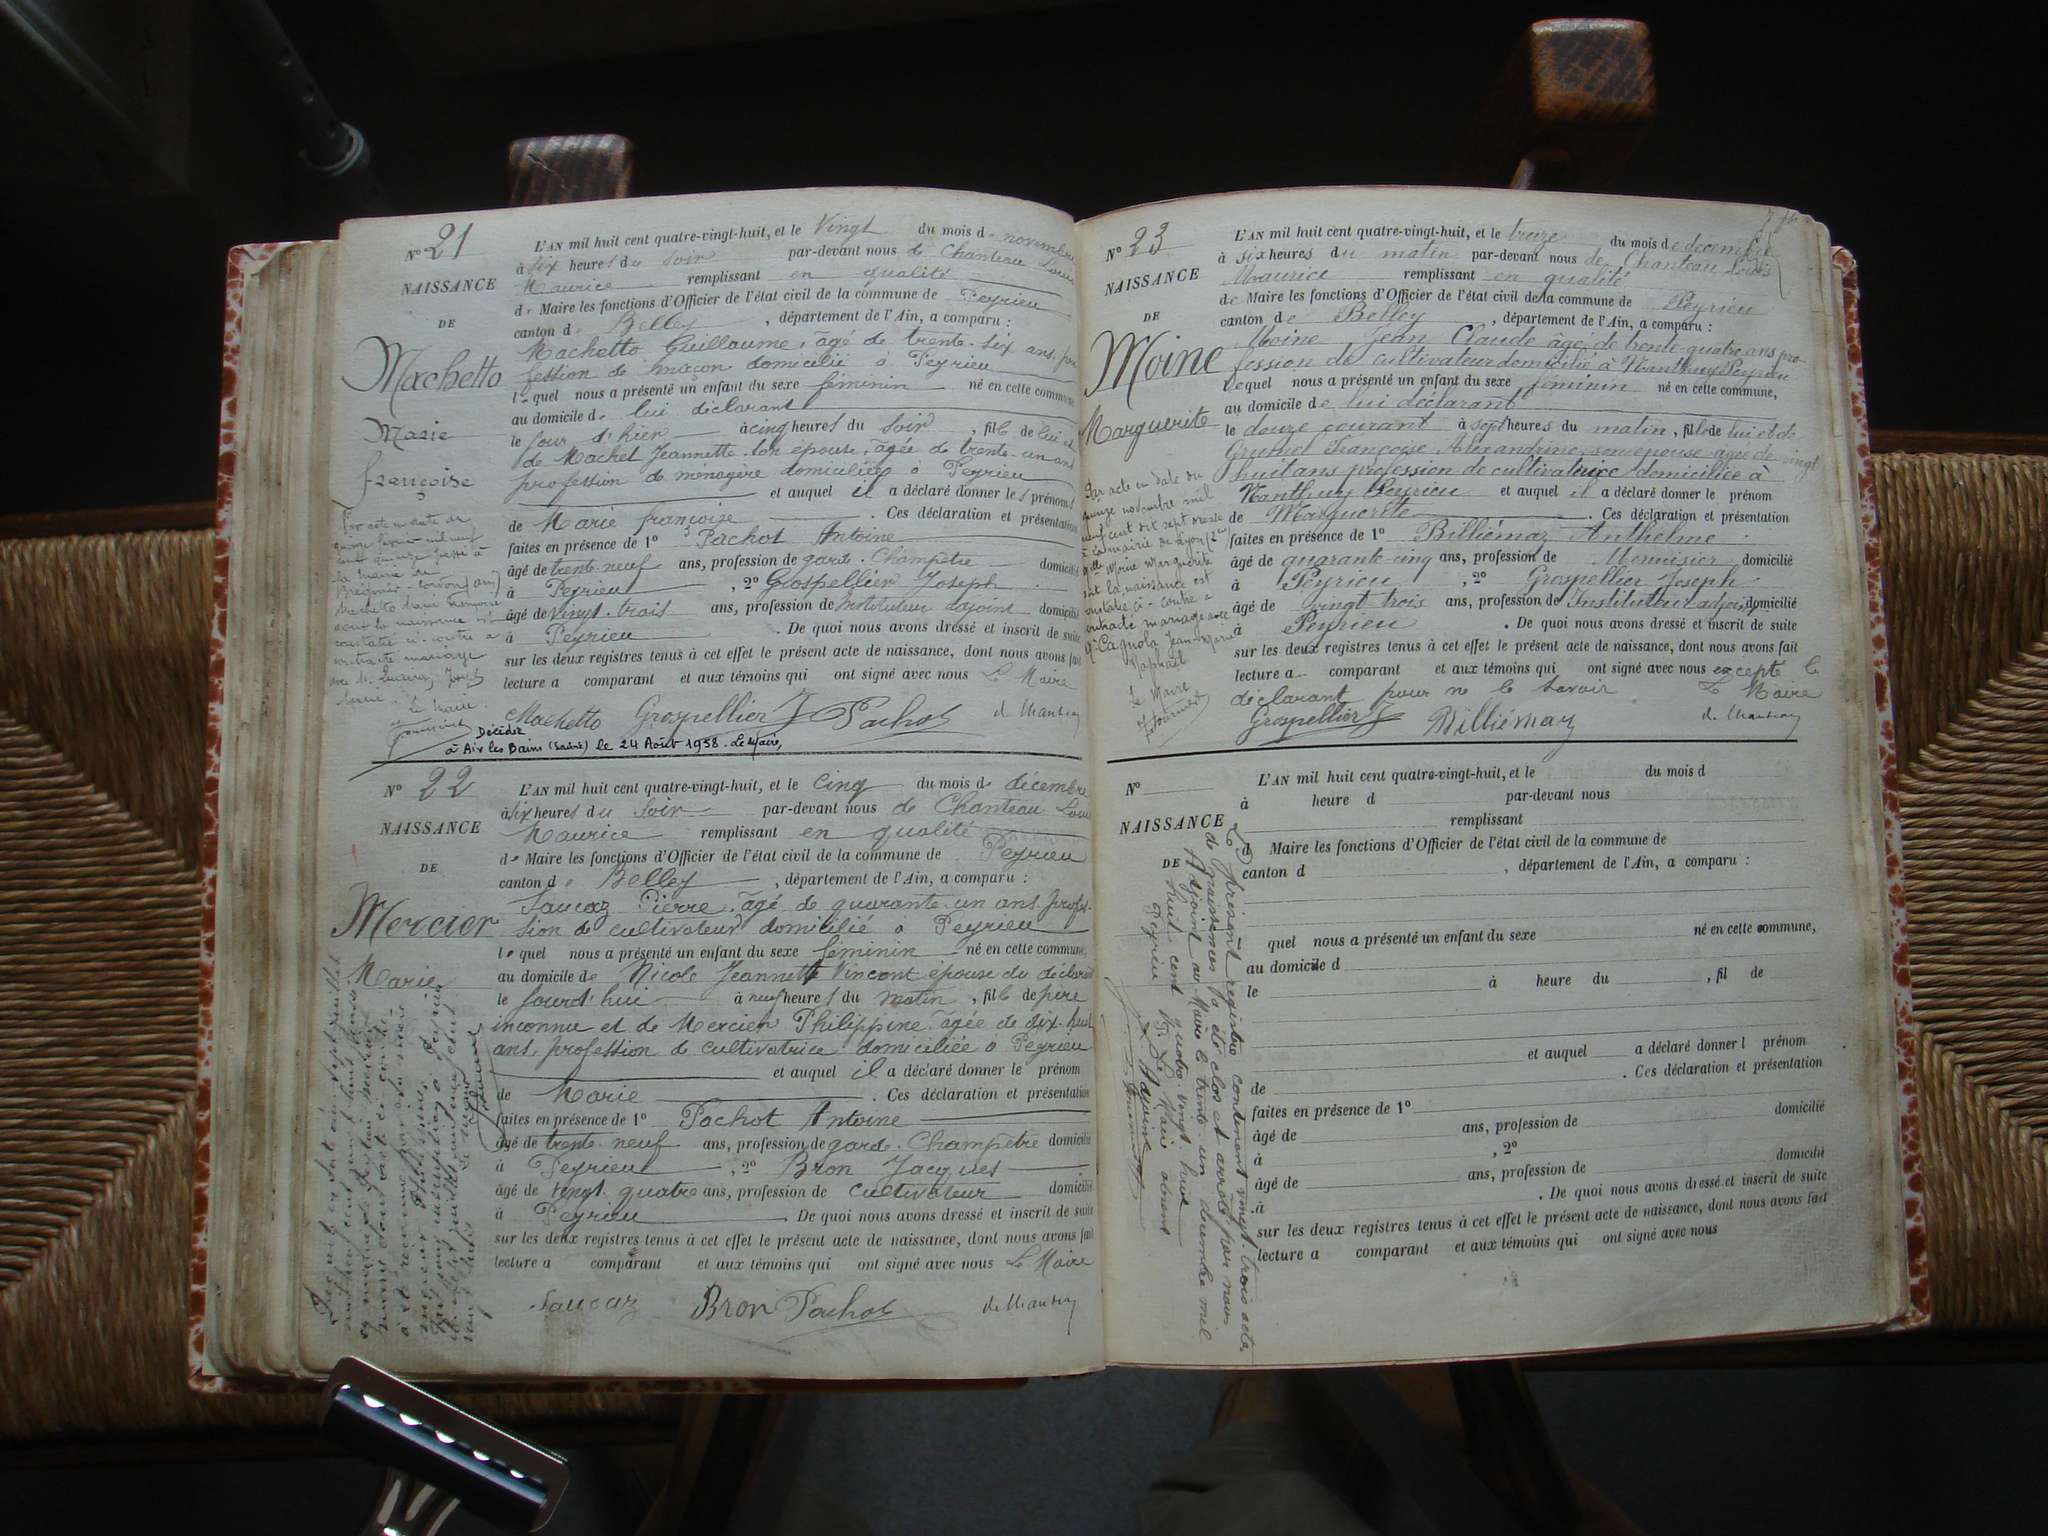 N° 21
NAISSANCE
DE
Machetto
Marie
françoise
L'AN mil huit cent quatre-vingt-huit, et le Vingt du mois de novembre
à six heures du soir par-devant nous de Chanteau Louis
Maurice remplissant en qualité
de Maire les fonctions d'Officier de l'état civil de la commune de Peyrieu
canton de Belley, département de l'Ain, a comparu :
Machetto Guillaume, âgé de trente-six ans, pro
fession de maçon domicilié à Peyrieu
lequel nous a présenté un enfant du sexe féminin né en cette commune
au domicile de lui déclarant
le jour d'hier à cinq heures du soir, fille de lui et
de Machet Jeannette son épouse, âgée de trente-un ans
profession de ménagère domiciliée à Peyrieu
et auquel il a déclaré donner les prénoms
de Marie françoise. Ces déclaration et présentation
faites en présence de 1° Pachot Antoine
âgé de trente-neuf ans, profession de garde-Champêtre domicilié
à Peyrieu, 2° Grospellier Joseph
âgé de vingt-trois ans, profession de Instituteur adjoint domicilié
à Peyrieu. De quoi nous avons dressé et inscrit de suite
sur les deux registres tenus à cet effet le présent acte de naissance, dont nous avons fait
lecture a comparant et aux témoins qui ont signé avec nous Le Maire
Machetto Grospellier J Pachot
Décédée
à Aix les Bains (Savoie) le 24 Août 1958. Le Maire,
N° 22
NAISSANCE
DE
Mercier
Marie
L'AN mil huit cent quatre-vingt-huit, et le Cinq du mois de décembre
à six heures du soir par-devant nous de Chanteau Louis
Maurice remplissant en qualité
de Maire les fonctions d'Officier de l'état civil de la commune de Peyrieu
canton de Belley, département de l'Ain, a comparu :
Saucaz Pierre, âgé de quarante-un ans, profes-
sion de cultivateur domicilié à Peyrieu
lequel nous a présenté un enfant du sexe féminin né en cette commune,
au domicile de Nicole Jeannette Vincent épouse du déclarant
le jourd'hui à neuf heures du matin, fille de père
inconnu et de Mercier Philippine, âgée de dix-huit
ans, profession de cultivatrice domiciliée à Peyrieu
et auquel il a déclaré donner le prénom
de Marie. Ces déclaration et présentation
faites en présence de 1° Pachot Antoine
âgé de trente-neuf ans, profession de garde-Champêtre domicilié
à Peyrieu, 2° Bron Jacques
âgé de vingt-quatre ans, profession de cultivateur domicilié
à Peyrieu. De quoi nous avons dressé et inscrit de suite
sur les deux registres tenus à cet effet le présent acte de naissance, dont nous avons fait
lecture a comparant et aux témoins qui ont signé avec nous Le Maire
Saucaz Bron Pachot
N° 23
NAISSANCE
DE
Moine
Marguerite
Par acte en date du
quinze novembre mil
neuf cent dix sept dressé
à la mairie de Lyon (2e)
Moine Marguerite
dont la naissance est
constatée ci-contre a
contracté mariage avec
Cagnola Jean-Marie
Raphaël
Le Maire
L'AN mil huit cent quatre-vingt-huit, et le treize du mois de décembre
à six heures du matin par-devant nous de Chanteau Louis
Maurice remplissant en qualité
de Maire les fonctions d'Officier de l'état civil de la commune de Peyrieu
canton de Belley, département de l'Ain, a comparu :
Moine Jean Claude âgé de trente-quatre ans pro-
fession de cultivateur domicilié à Nanthuy Peyrieu
lequel nous a présenté un enfant du sexe féminin né en cette commune,
au domicile de lui déclarant
le douze courant à sept heures du matin, fille de lui et de
Françoise Alexandrine, son épouse âgée de vingt
huit ans profession de cultivatrice domiciliée à
Nanthuy Peyrieu et auquel il a déclaré donner le prénom
de Marguerite. Ces déclaration et présentation
faites en présence de 1° Billiémaz Anthelme
âgé de quarante cinq ans, profession de Menuisier domicilié
à Peyrieu, 2° Grospellier Joseph
âgé de vingt trois ans, profession de Instituteur adjoint domicilié
à Peyrieu. De quoi nous avons dressé et inscrit de suite
sur les deux registres tenus à cet effet le présent acte de naissance, dont nous avons fait
lecture a comparant et aux témoins qui ont signé avec nous excepté le
déclarant pour ne le savoir Le Maire
Grospellier J Billiémaz
N°
NAISSANCE
DE
L'AN mil huit cent quatre-vingt-huit, et le du mois d
à heure d par-devant nous
remplissant
d Maire les fonctions d'Officier de l'état civil de la commune de
canton d , département de l'Ain, a comparu :
quel nous a présenté un enfant du sexe né en cette commune,
au domicile d
le à heure du , fil de
et auquel a déclaré donner l prénom
de . Ces déclaration et présentation
faites en présence de 1°
âgé de ans, profession de domicilié
à , 2°
âgé de ans, profession de domicilié
à . De quoi nous avons dressé et inscrit de suite
sur les deux registres tenus à cet effet le présent acte de naissance, dont nous avons fait
lecture a comparant et aux témoins qui ont signé avec nous
Le présent registre contenant vingt-trois actes
de Naissances a été clos et arrêté par nous
Adjoint au Maire le trente-un décembre mil
huit cent quatre vingt-huit
Peyrieu Pr Le Maire absent
L'Adjoint